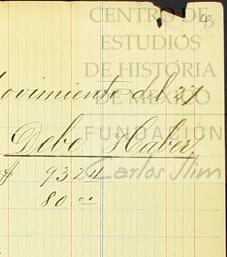 43
CENTRO DE
ESTUDIOS
DE HISTORIA
DE MÉXICO
ovimiento del 27
Debe Haber
FUNDACIÓN
Carlos Slim
$ 9374
80.00